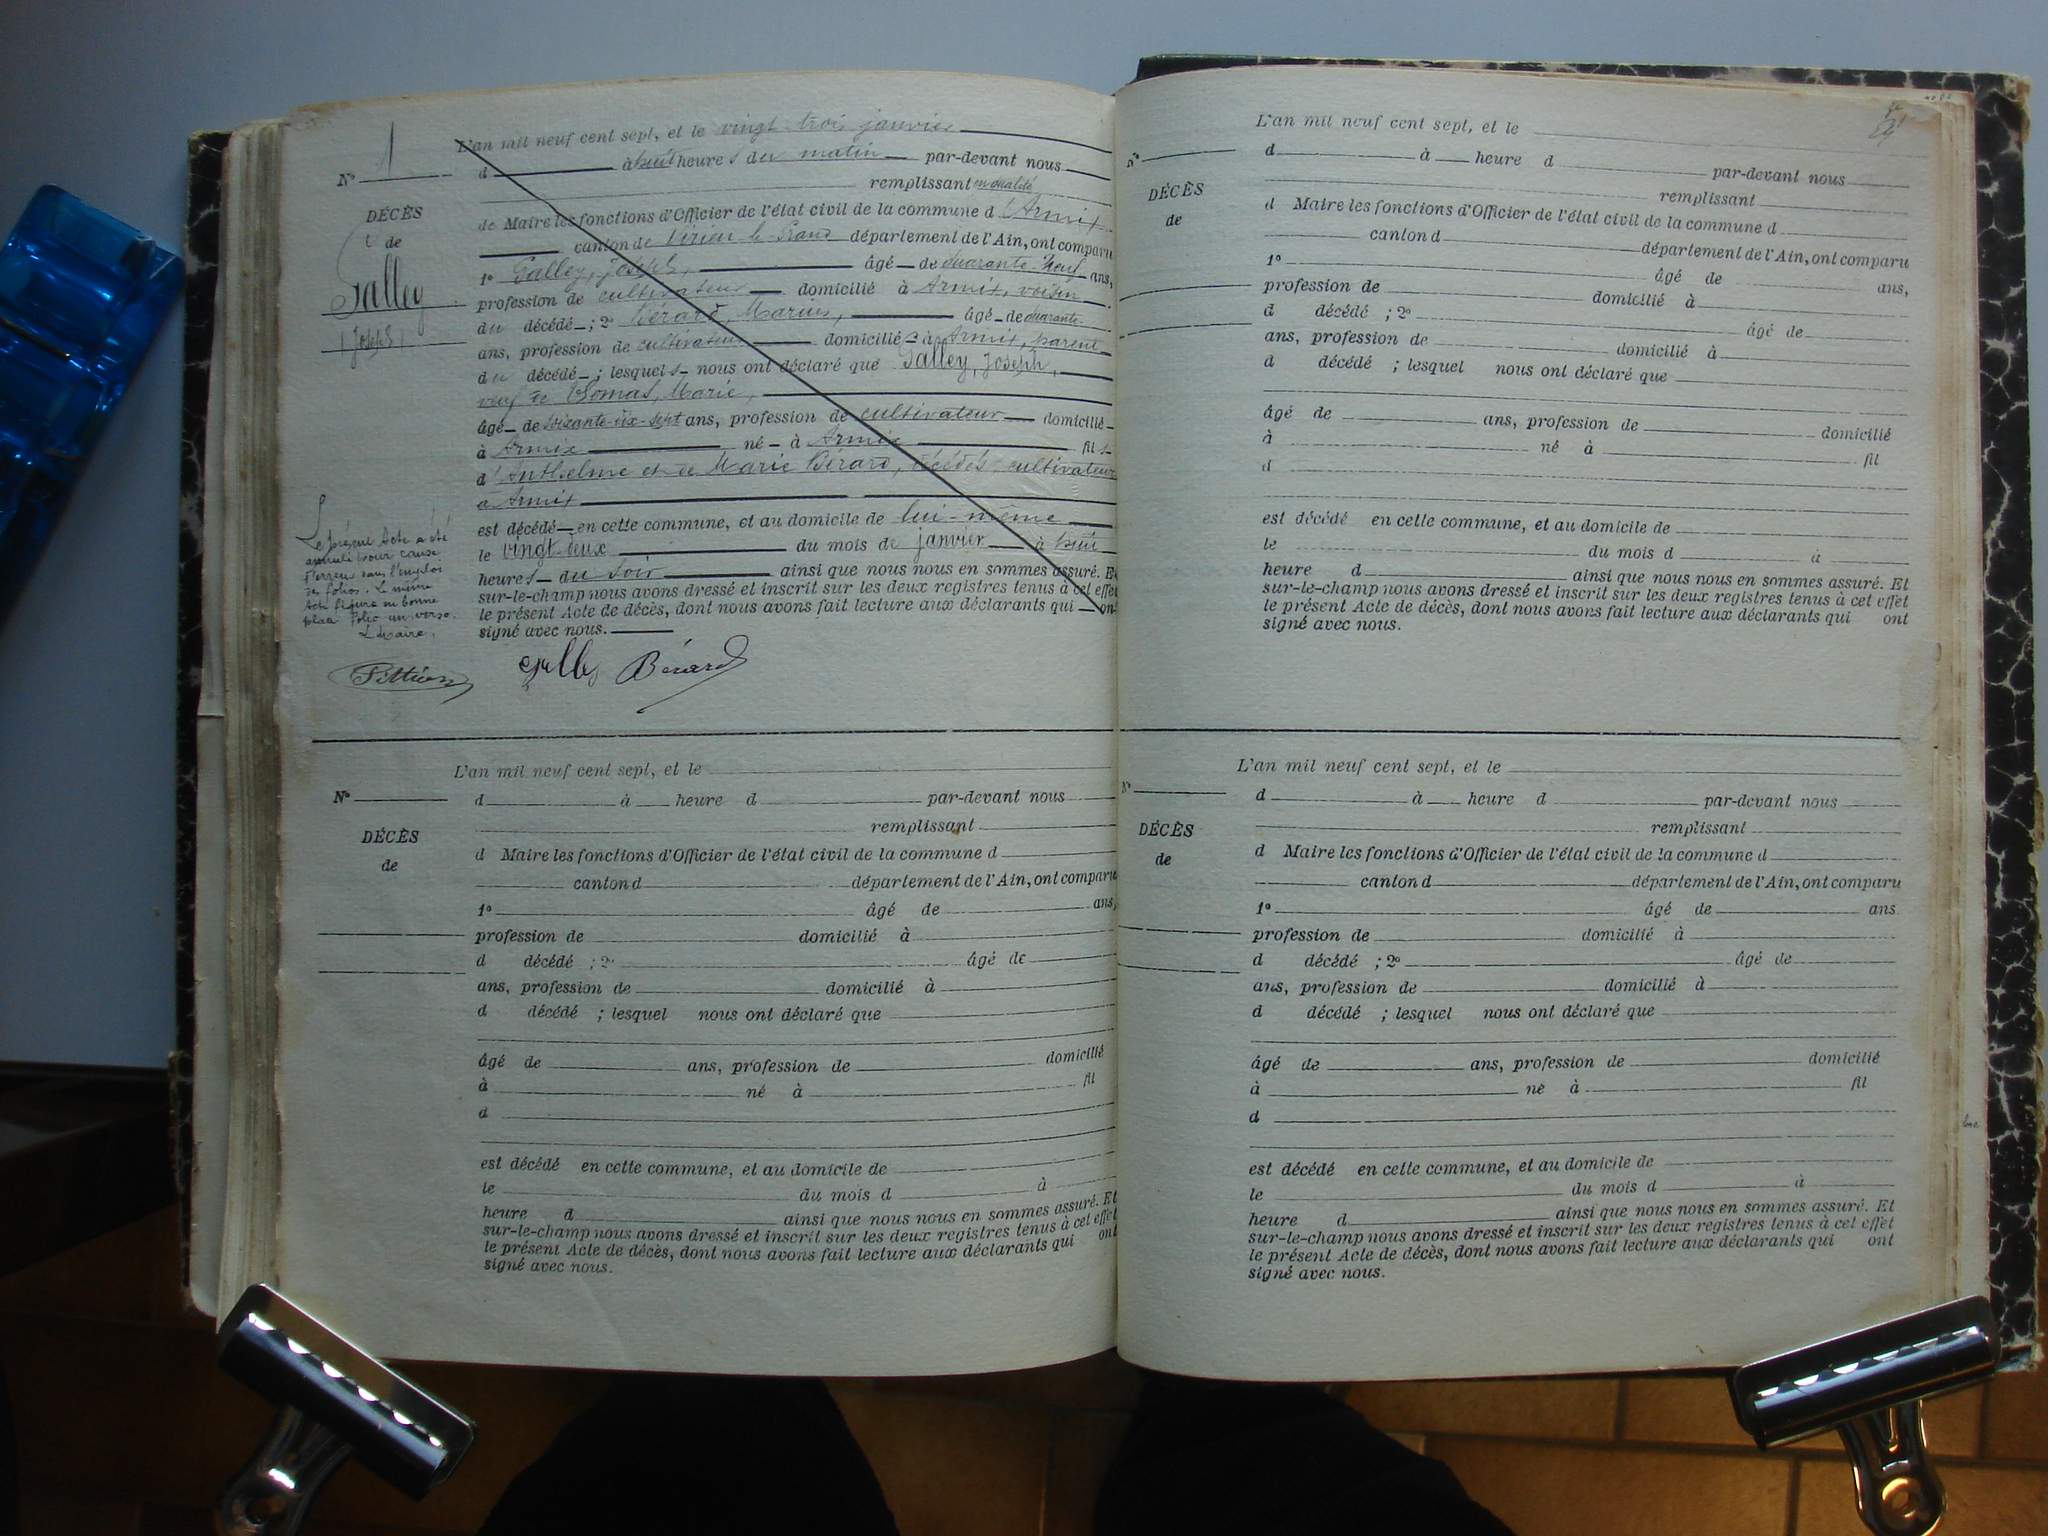 N° 1
DÉCÈS
de
Galley
(Joseph)
L'an mil neuf cent sept, et le vingt-trois janvier
d à huit heures du matin par-devant nous
remplissant en qualité
de Maire les fonctions d'Officier de l'état civil de la commune d'Armix
canton de Virieu-le-Grand département de l'Ain, ont comparu
1° Galley, Joseph, âgé de quarante-neuf ans,
profession de cultivateur domicilié à Armix, voisin
du décédé ; 2° Bérard, Marius, âgé de quarante-
ans, profession de cultivateur domicilié à Armix, parent
du décédé ; lesquels nous ont déclaré que Galley, Joseph,
veuf de Thomas, Marie,
âgé de soixante-dix-sept ans, profession de cultivateur domicilié
à Armix né à Armix fils
d'Anthelme et de Marie Bérard, décédés, cultivateurs
à Armix
est décédé en cette commune, et au domicile de lui-même
le vingt-deux du mois de janvier à huit
heures du soir ainsi que nous nous en sommes assuré. Et
sur-le-champ nous avons dressé et inscrit sur les deux registres tenus à cet effet
le présent Acte de décès, dont nous avons fait lecture aux déclarants qui ont
signé avec nous.
Le présent Acte a été
annulé pour cause
d'erreur dans l'emploi
des folios. Le même
Acte figure en bonne
place Folio un verso.
Le Maire,
Galley Bérard
N°
DÉCÈS
de
L'an mil neuf cent sept, et le
d à heure d par-devant nous
remplissant
d Maire les fonctions d'Officier de l'état civil de la commune d
canton d département de l'Ain, ont comparu
1° âgé de ans,
profession de domicilié à
d décédé ; 2° âgé de
ans, profession de domicilié à
d décédé ; lesquel nous ont déclaré que
âgé de ans, profession de domicilié
à né à fil
d
est décédé en cette commune, et au domicile de
le du mois d à
heure d ainsi que nous nous en sommes assuré. Et
sur-le-champ nous avons dressé et inscrit sur les deux registres tenus à cet effet
le présent Acte de décès, dont nous avons fait lecture aux déclarants qui ont
signé avec nous.
N°
DÉCÈS
de
L'an mil neuf cent sept, et le
d à heure d par-devant nous
remplissant
d Maire les fonctions d'Officier de l'état civil de la commune d
canton d département de l'Ain, ont comparu
1° âgé de ans,
profession de domicilié à
d décédé ; 2° âgé de
ans, profession de domicilié à
d décédé ; lesquel nous ont déclaré que
âgé de ans, profession de domicilié
à né à fil
d
est décédé en cette commune, et au domicile de
le du mois d à
heure d ainsi que nous nous en sommes assuré. Et
sur-le-champ nous avons dressé et inscrit sur les deux registres tenus à cet effet
le présent Acte de décès, dont nous avons fait lecture aux déclarants qui ont
signé avec nous.
N°
DÉCÈS
de
L'an mil neuf cent sept, et le
d à heure d par-devant nous
remplissant
d Maire les fonctions d'Officier de l'état civil de la commune d
canton d département de l'Ain, ont comparu
1° âgé de ans
profession de domicilié à
d décédé ; 2° âgé de
ans, profession de domicilié à
d décédé ; lesquel nous ont déclaré que
âgé de ans, profession de domicilié
à né à fil
d
est décédé en cette commune, et au domicile de
le du mois d à
heure d ainsi que nous nous en sommes assuré. Et
sur-le-champ nous avons dressé et inscrit sur les deux registres tenus à cet effet
le présent Acte de décès, dont nous avons fait lecture aux déclarants qui ont
signé avec nous.